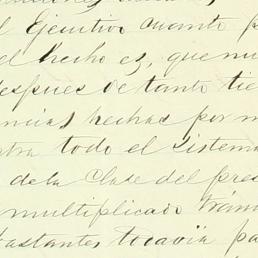 l Ejecutivo cuanto p
el hecho es, que nu
despues de tanto tie
ncias hechas por m
tra todo el sistema
de la Clase del pres
multiplicado trám
bastantes todavia pa